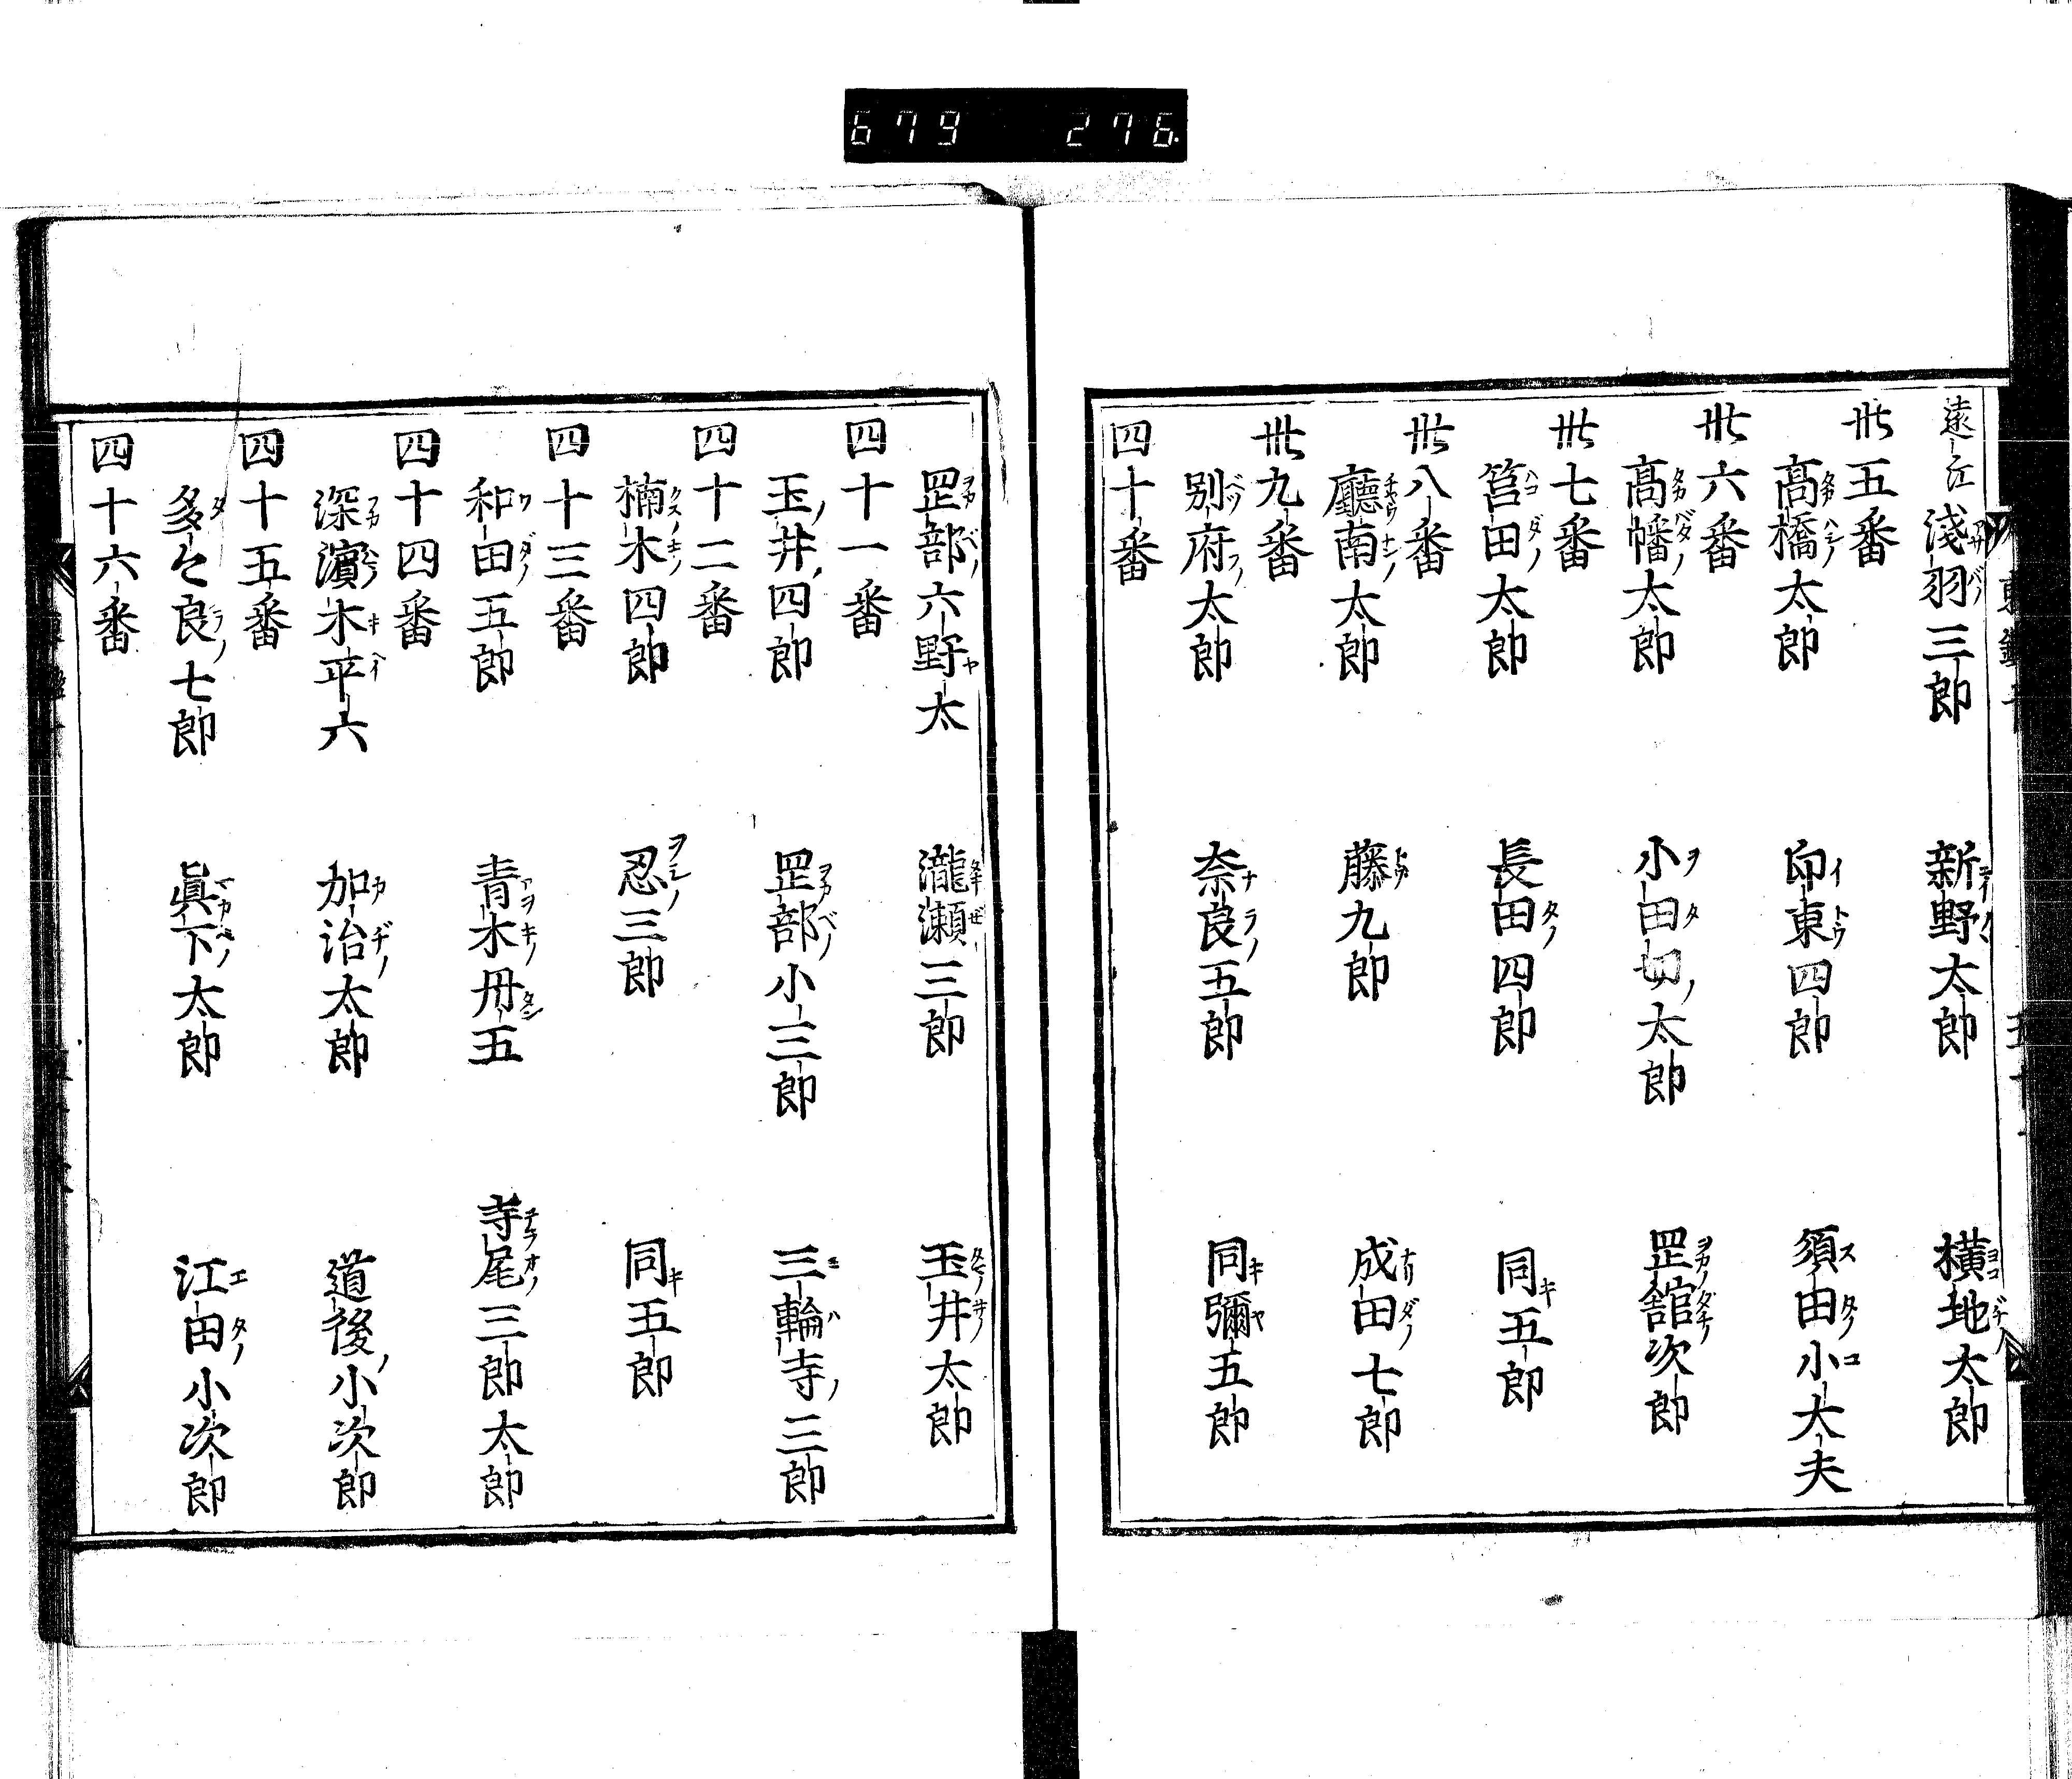 679 276
遠江淺羽三郎 新野太郎 橫地太郎
丗五番
髙橋太郎 印東四郎 須田小大夫
丗六番
髙幡太郎 小田切太郎 罡舘次郎
丗七番
筥田太郎 長田四郎 同五郎
丗八番
廳南太郎 藤九郎 成田七郎
丗九番
別府太郎 奈良五郎 同彌五郎
四十番
罡部六野太 瀧瀬三郎 玉井太郎
四十一番
玉井四郎 罡部小三郎 三輪寺三郎
四十二番
楠木四郎 忍三郎 同五郎
四十三番
和田五郎 青木丹五 寺尾三郎太郎
四十四番
深濵木平六 加治太郎 道後小次郎
四十五番
多々良七郎 眞下太郎 江田小次郎
四十六番